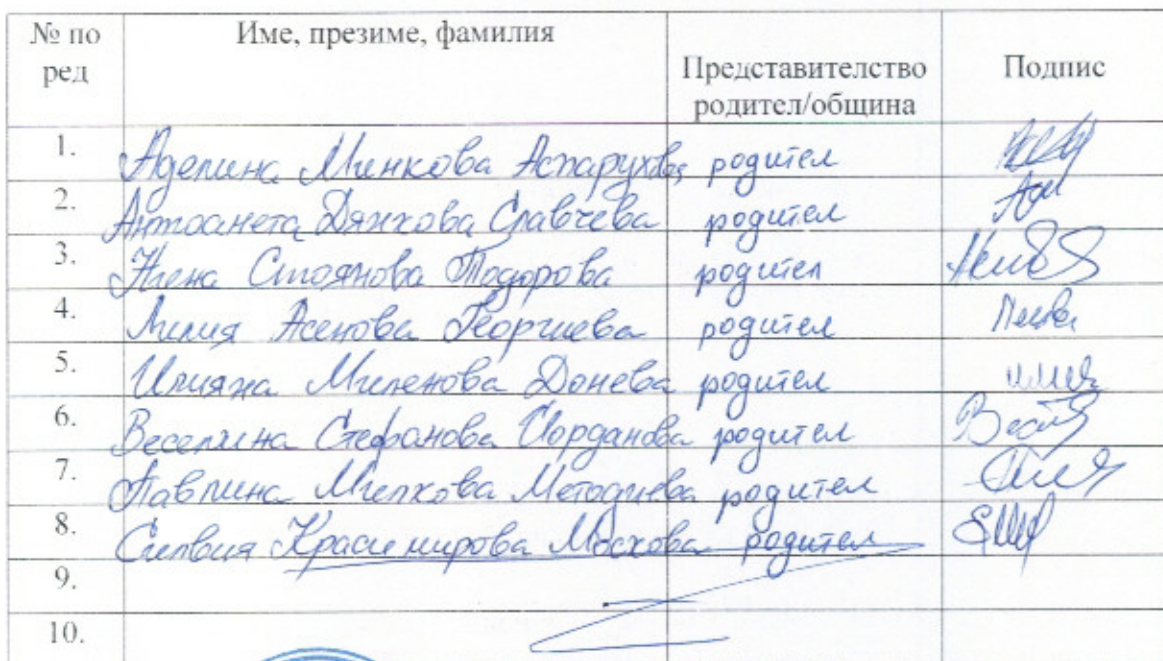 № по ред Име, презиме, фамилия Представителство родител/община Подпис
1. Аделина Минкова Аспарухова родител
2. Антоанета Дянкова Славчева родител
3. Нена Стоянова Тодорова родител
4. Лилия Асенова Георгиева родител
5. Илияна Миленова Донева родител
6. Веселина Стефанова Йорданова родител
7. Павлина Милкова Методиева родител
8. Силвия Красимирова Москова родител
9.
10.